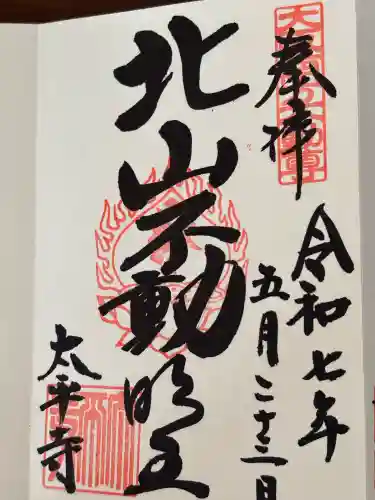 奉拝
令和七年
五月二十三日
北山不動明王
太平寺